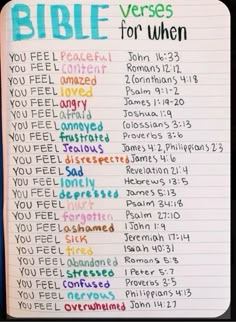 BIBLE verses for when
YOU FEEL Peaceful John 16:33
YOU FEEL Content Romans 12:12
YOU FEEL amazed 2 Corinthians 4:18
YOU FEEL loved Psalm 9:1-2
YOU FEEL angry James 1:19-20
YOU FEEL afraid Joshua 1:9
YOU FEEL annoyed Colossians 3:13
YOU FEEL frustrated Proverbs 3:6
YOU FEEL Jealous James 4:2, Philippians 2:3
YOU FEEL disrespected James 4:6
YOU FEEL Sad Revelation 21:4
YOU FEEL lonely Hebrews 13:5
YOU FEEL depressed James 5:13
YOU FEEL hurt Psalm 34:18
YOU FEEL forgotten Psalm 27:10
YOU FEEL ashamed 1 John 1:9
YOU FEEL Sick Jeremiah 17:14
YOU FEEL tired Isaiah 40:31
YOU FEEL abandoned Romans 5:8
YOU FEEL stressed 1 Peter 5:7
YOU FEEL confused Proverbs 3:5
YOU FEEL nervous Philippians 4:13
YOU FEEL overwhelmed John 14:27